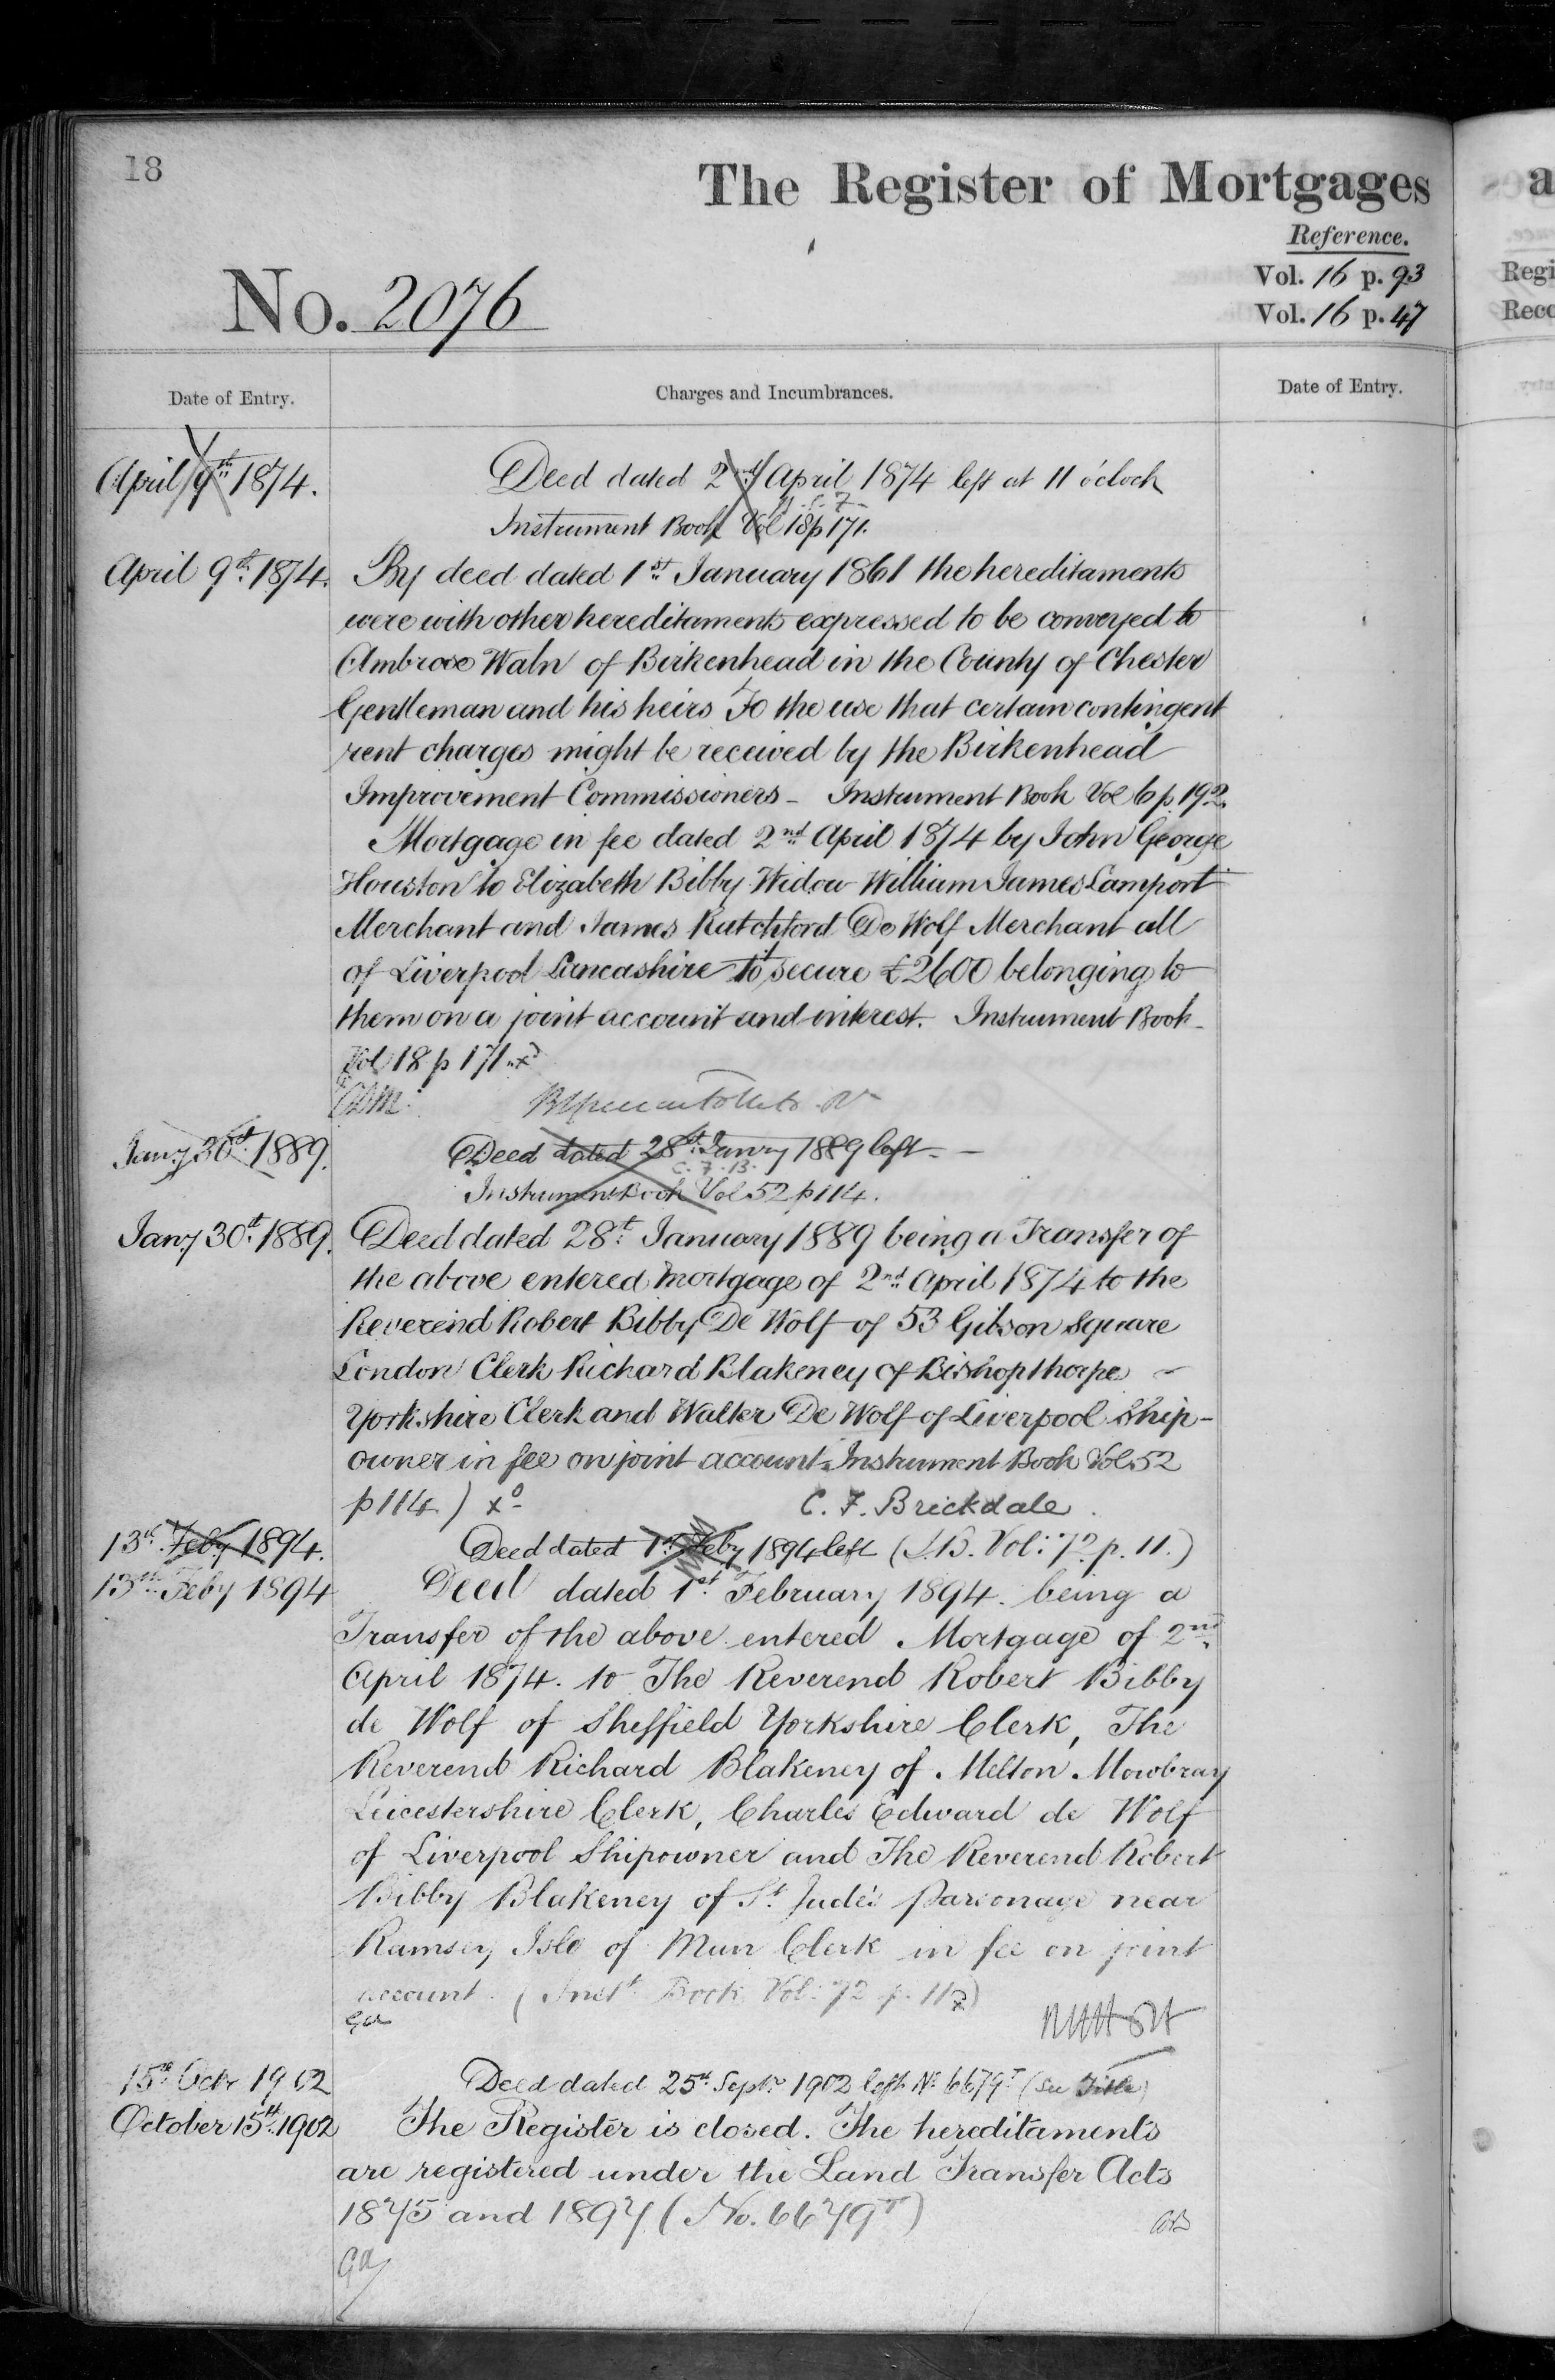 18
The Register of Mortgages
Reference.
Vol. 16 p. 93
Vol. 16 p. 47
No. 2076
Date of Entry.
Charges and Incumbrances.
Date of Entry.
April 9th 1874. Deed dated 2nd April 1874 left at 11 o'clock
Instrument Book Vol 18 p 171.
April 9th 1874. By deed dated 1st January 1861 the hereditaments
were with other hereditaments expressed to be conveyed to
Ambrose Waln of Birkenhead in the County of Chester
Gentleman and his heirs To the use that certain contingent
rent charges might be received by the Birkenhead
Improvement Commissioners - Instrument Book Vol 6 p 192.
Mortgage in fee dated 2nd April 1874 by John George
Houston to Elizabeth Bibby Widow William James Lamport
Merchant and James Ratchford De Wolf Merchant all
of Liverpool Lancashire to secure £2600 belonging to
them on a joint account and interest. Instrument Book
Vol 18 p 171
Jany 30th 1889. Deed dated 28th Janry 1889 left -
C. F. B.
Instrument Book Vol 52 p 114.
Jany 30th 1889. Deed dated 28th January 1889 being a Transfer of
the above entered mortgage of 2nd April 1874 to the
Reverend Robert Bibby De Wolf of 53 Gibson Square
London Clerk Richard Blakeney of Bishopthorpe
Yorkshire Clerk and Walter De Wolf of Liverpool Ship-
owner in fee on joint account Instrument Book Vol. 52
p 114) xo C. F. Brickdale.
13th Feby 1894. Deed dated 1st Feby 1894 left (I.B. Vol: 72 p. 11.)
13th Feby 1894 Deed dated 1st February 1894. being a
Transfer of the above entered Mortgage of 2nd
April 1874. to The Reverend Robert Bibby
de Wolf of Sheffield Yorkshire Clerk, The
Reverend Richard Blakeney of Melton Mowbray
Leicestershire Clerk, Charles Edward de Wolf
of Liverpool Shipowner and The Reverend Robert
Bibby Blakeney of St. Jude's Parsonage near
Ramsey Isle of Man Clerk in fee on joint
account. (Inst. Book Vol: 72 p. 11 x)
15th Octr 1902 Deed dated 25th Septr 1902 left No 6679T (See Title)
October 15th 1902 The Register is closed. The hereditaments
are registered under the Land Transfer Acts
1875 and 1897 (No. 6679T)
a
Regi
Reco